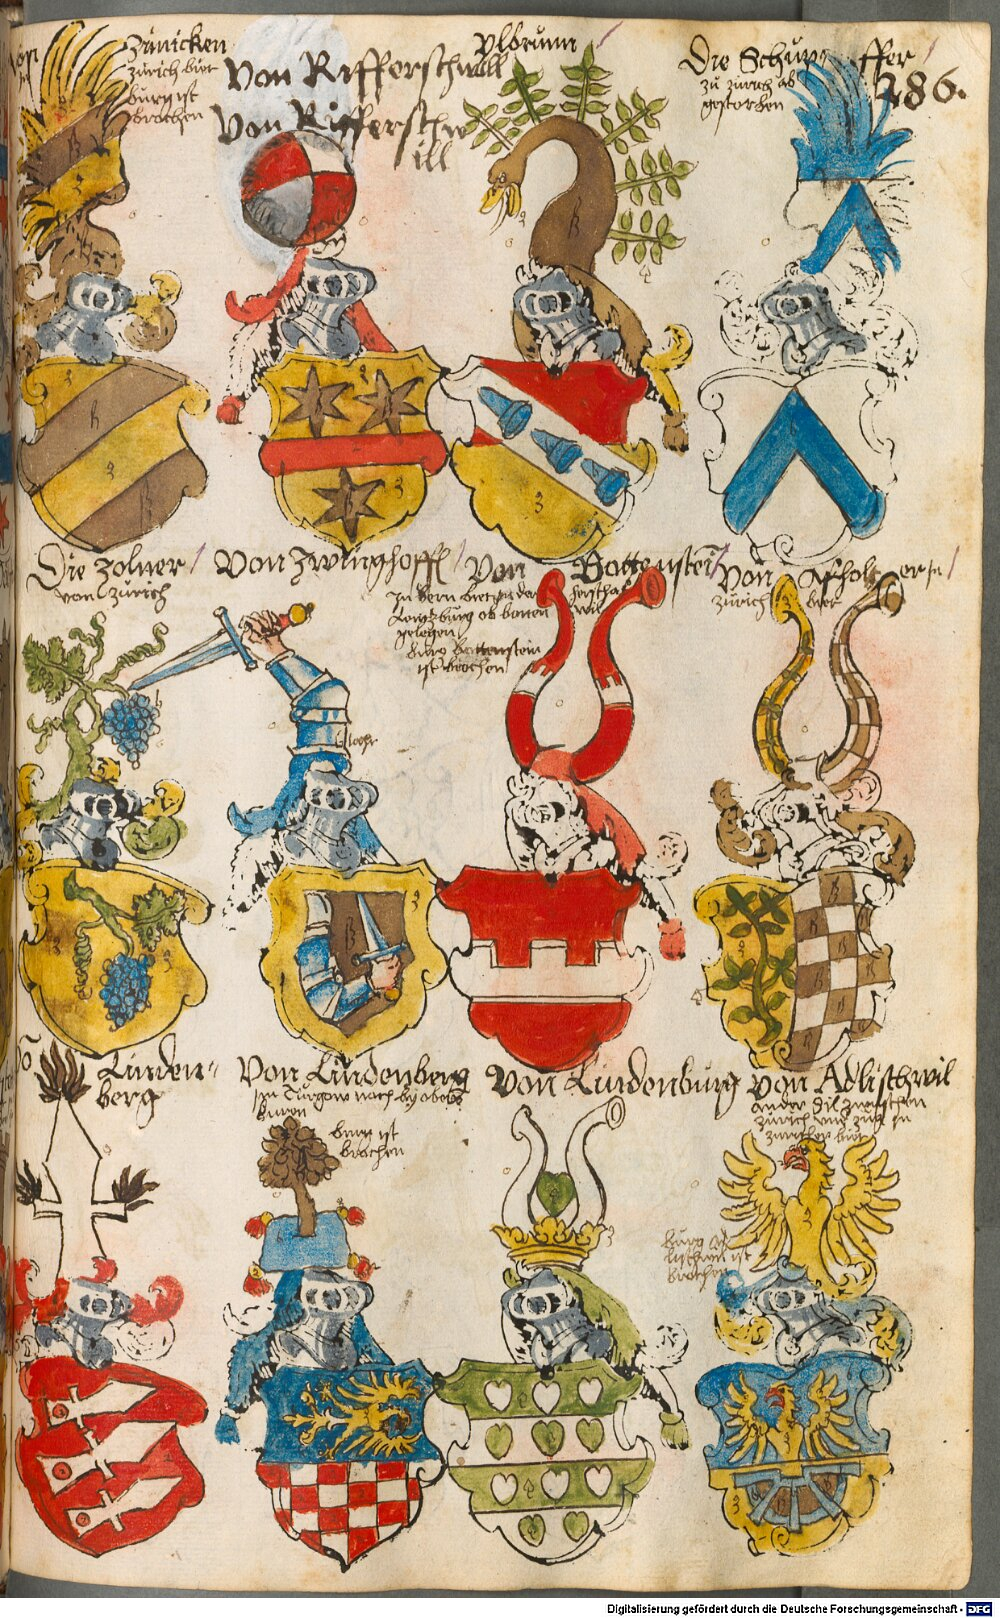 Von
Zünicken
zürich biet
burg ist
brochen
Von Rifferschwill
Von Rifferschw
ill
Vlbrunn
Die Schüpffer
zu zürich ab
gestorben
286.
Die Zolner
von zürich
Von Zwinghoff
Von Bottenstein
In bern biet in der
Lentzburg ob botten
gelegen
burg Bottenstein
ist brochen
Von Affholter in
zürich biet
Linden-
berg
Von Lindenberg
Im Turgow nach by
buren
burg ist
brochen
Von Lindenburg
Von Adlischwil
an der Sil zwischen
zürich und zug in
zuricher biet
burg
ist
brochen
Digitalisierung gefördert durch die Deutsche Forschungsgemeinschaft - DFG